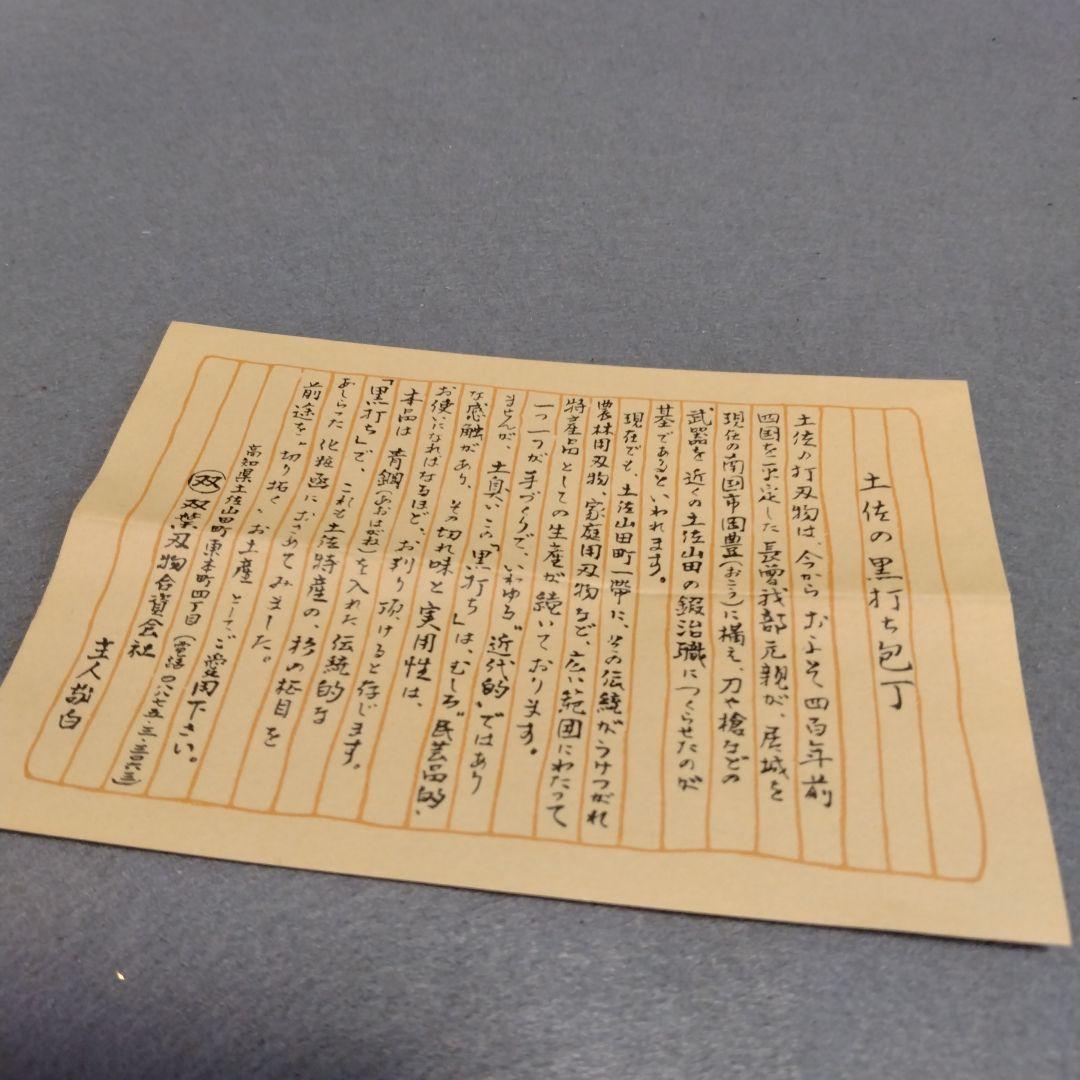 土佐の黒打ち包丁
土佐の打刃物は、今から およそ四百年前
四国を平定した長曽我部元親が、居城を
現在の南国市岡豊(おこう)に構え、刀や槍などの
武器を近くの土佐山田の鍛冶職につくらせたのが
基であるといわれます。
現在でも、土佐山田町一帯に、その伝統がうけつがれ
農林用刃物、家庭用刃物など、広い範囲にわたって
特産品としての生産が続いております。
一つ一つが手づくりで、いわゆる“近代的”ではあり
ませんが、土臭いこの「黒打ち」は、むしろ“民芸品的”
な感触があり、その切れ味と実用性は、
お使いになればなるほど、お判り頂けると存じます。
本品は 青鋼(あおはがね)を入れた伝統的な
「黒打ち」で、これも土佐特産の、杉の柾目を
あしらった化粧函におさめてみました。
前途を“切り拓く”お土産 としてご愛用下さい。
高知県土佐山田町東本町四丁目 (電話〇八八七五・三・三〇六三)
双 双葉刃物合資会社
主人敬白